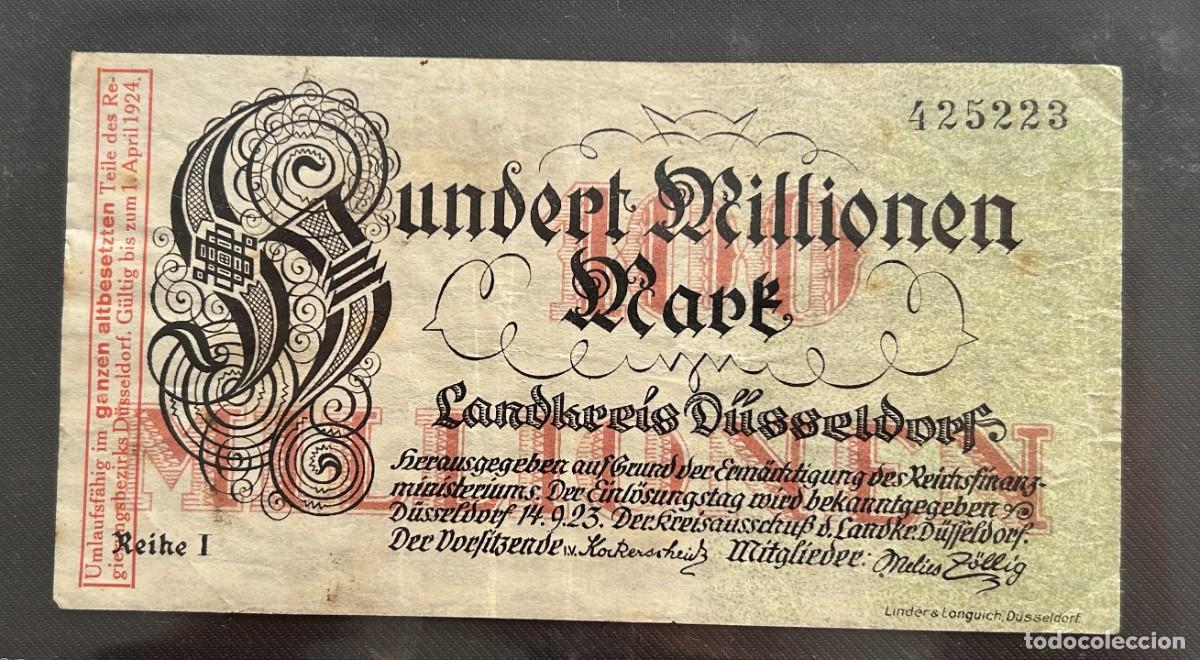 Umlaufsfähig im ganzen altbesetzten Teile des Re-
gierungsbezirks Düsseldorf. Gültig bis zum 1. April 1924.
425223
Hundert Millionen
Mark
100
MILLIONEN
Landkreis Düsseldorf
Herausgegeben auf Grund der Ermächtigung des Reichsfinanz-
ministeriums. Der Einlösungstag wird bekanntgegeben
Düsseldorf 14.9.23. Der Kreisausschuß d. Landkr. Düsseldorf.
Der Vorsitzende i.V. Mitglieder: Melies Zöllig
Reihe I
Linder & Longuich, Düsseldorf
todocoleccion